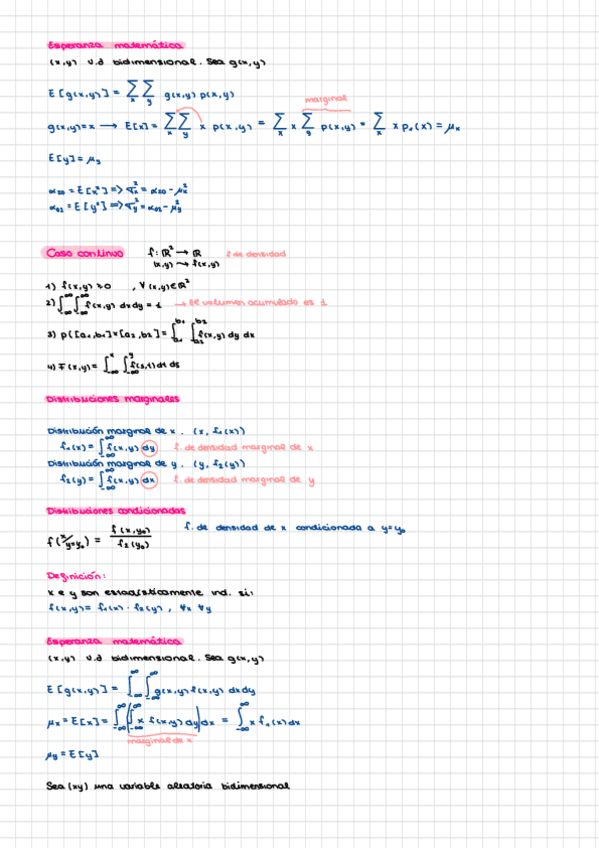 Esperanza matemática
(x,y) v.d bidimensional. Sea g(x,y)
E[g(x,y)] = ∑x ∑y g(x,y) p(x,y)
marginal
g(x,y)=x → E[x] = ∑x ∑y x p(x,y) = ∑x x ∑y p(x,y) = ∑x x p₁(x) = μx
E[y] = μy
α₂₀ = E[x²] => σx² = α₂₀ - μx²
α₀₂ = E[y²] => σy² = α₀₂ - μy²
Caso continuo f: ℝ² → ℝ f. de densidad
(x,y) → f(x,y)
1) f(x,y) ≥ 0 , ∀(x,y)∈ℝ²
2) ∫-∞^∞ ∫-∞^∞ f(x,y) dxdy = 1 → El volumen acumulado es 1
3) p([a₁,b₁]×[a₂,b₂]) = ∫a₁^b₁ ∫a₂^b₂ f(x,y) dy dx
4) F(x,y) = ∫-∞^x ∫-∞^y f(s,t) dt ds
Distribuciones marginales
Distribución marginal de x. (x, f₁(x))
f₁(x) = ∫-∞^∞ f(x,y) dy f. de densidad marginal de x
Distribución marginal de y. (y, f₂(y))
f₂(y) = ∫-∞^∞ f(x,y) dx f. de densidad marginal de y
Distribuciones condicionadas
f(x/y=y₀) = f(x,y₀)/f₂(y₀) f. de densidad de x condicionada a y=y₀
Definición:
x e y son estadísticamente ind. si:
f(x,y) = f₁(x) · f₂(y) , ∀x ∀y
Esperanza matemática
(x,y) v.d bidimensional. Sea g(x,y)
E[g(x,y)] = ∫-∞^∞ ∫-∞^∞ g(x,y) f(x,y) dxdy
μx = E[x] = ∫-∞^∞ (∫-∞^∞ x f(x,y) dy) dx = ∫-∞^∞ x f₁(x) dx
marginal de x
μy = E[y]
Sea (xy) una variable aleatoria bidimensional